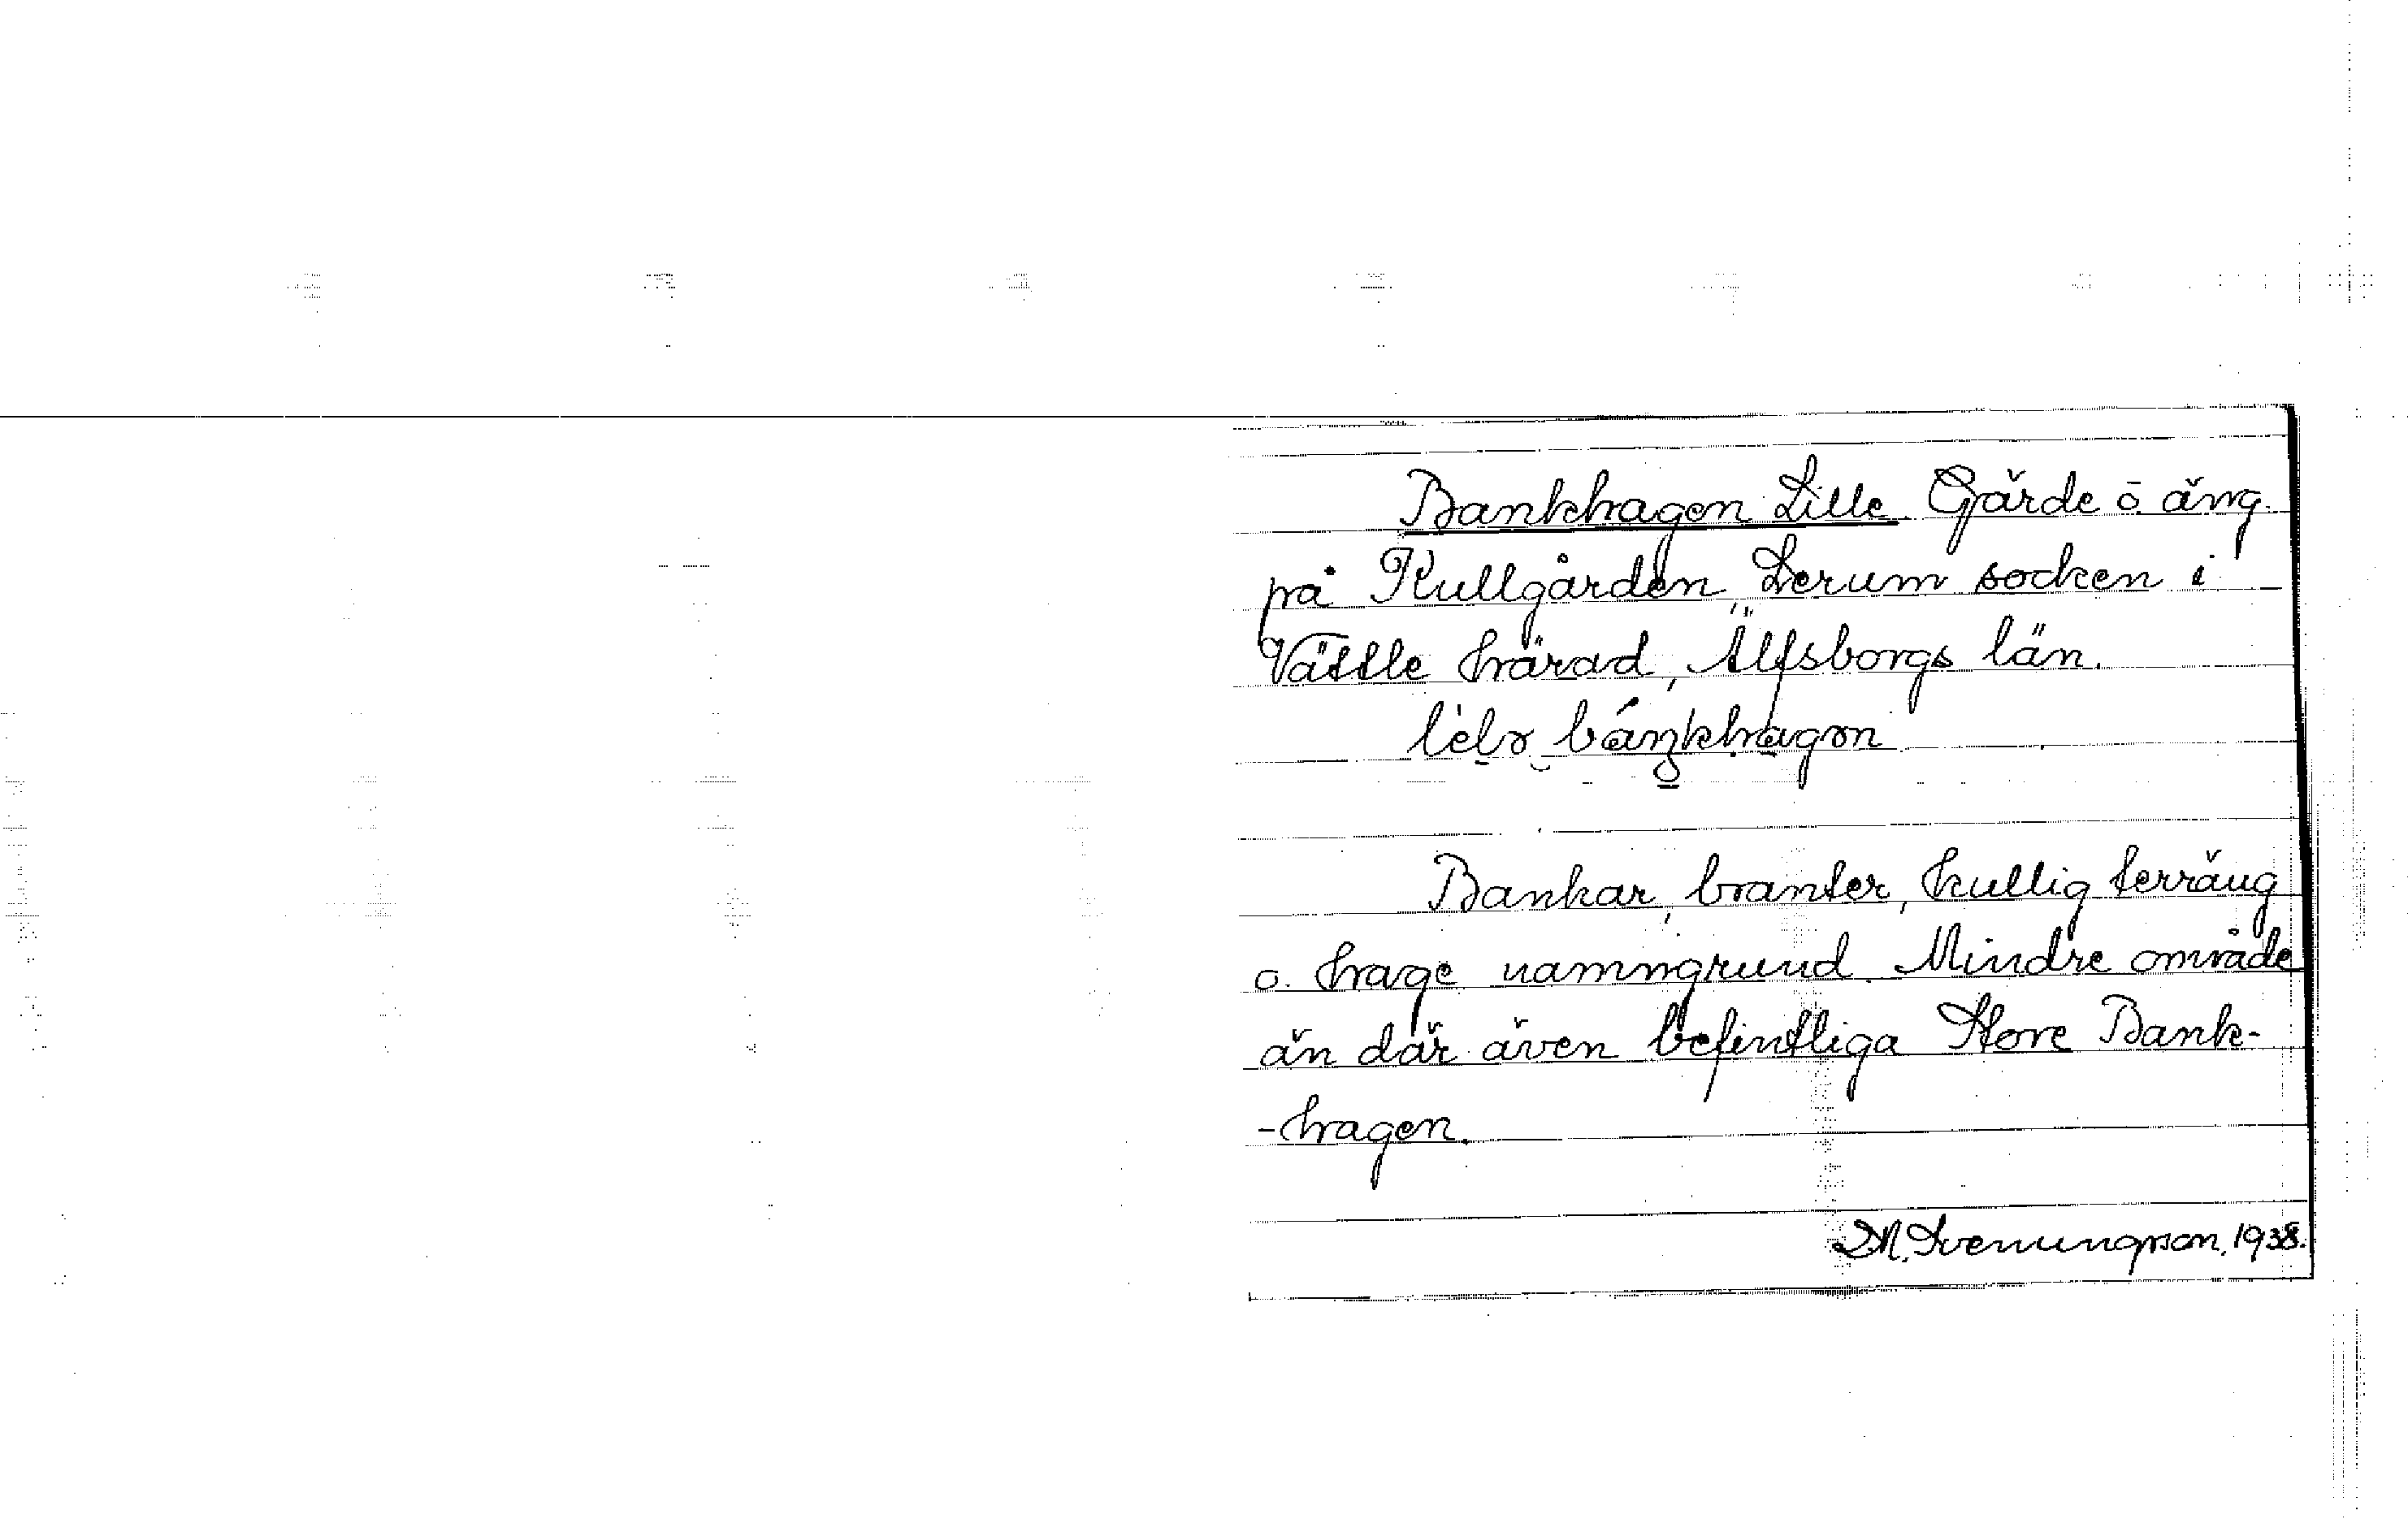 Bankhagen Lille. Gärde o. äng
på Kullgården, Lerum socken i
Vättle härad, Älfsborgs län.
Bankar, branter, kullig terräng
o. hage namngrund. Mindre område
än där även befintliga Store Bank-
-hagen.
Svenungsson, 1938.